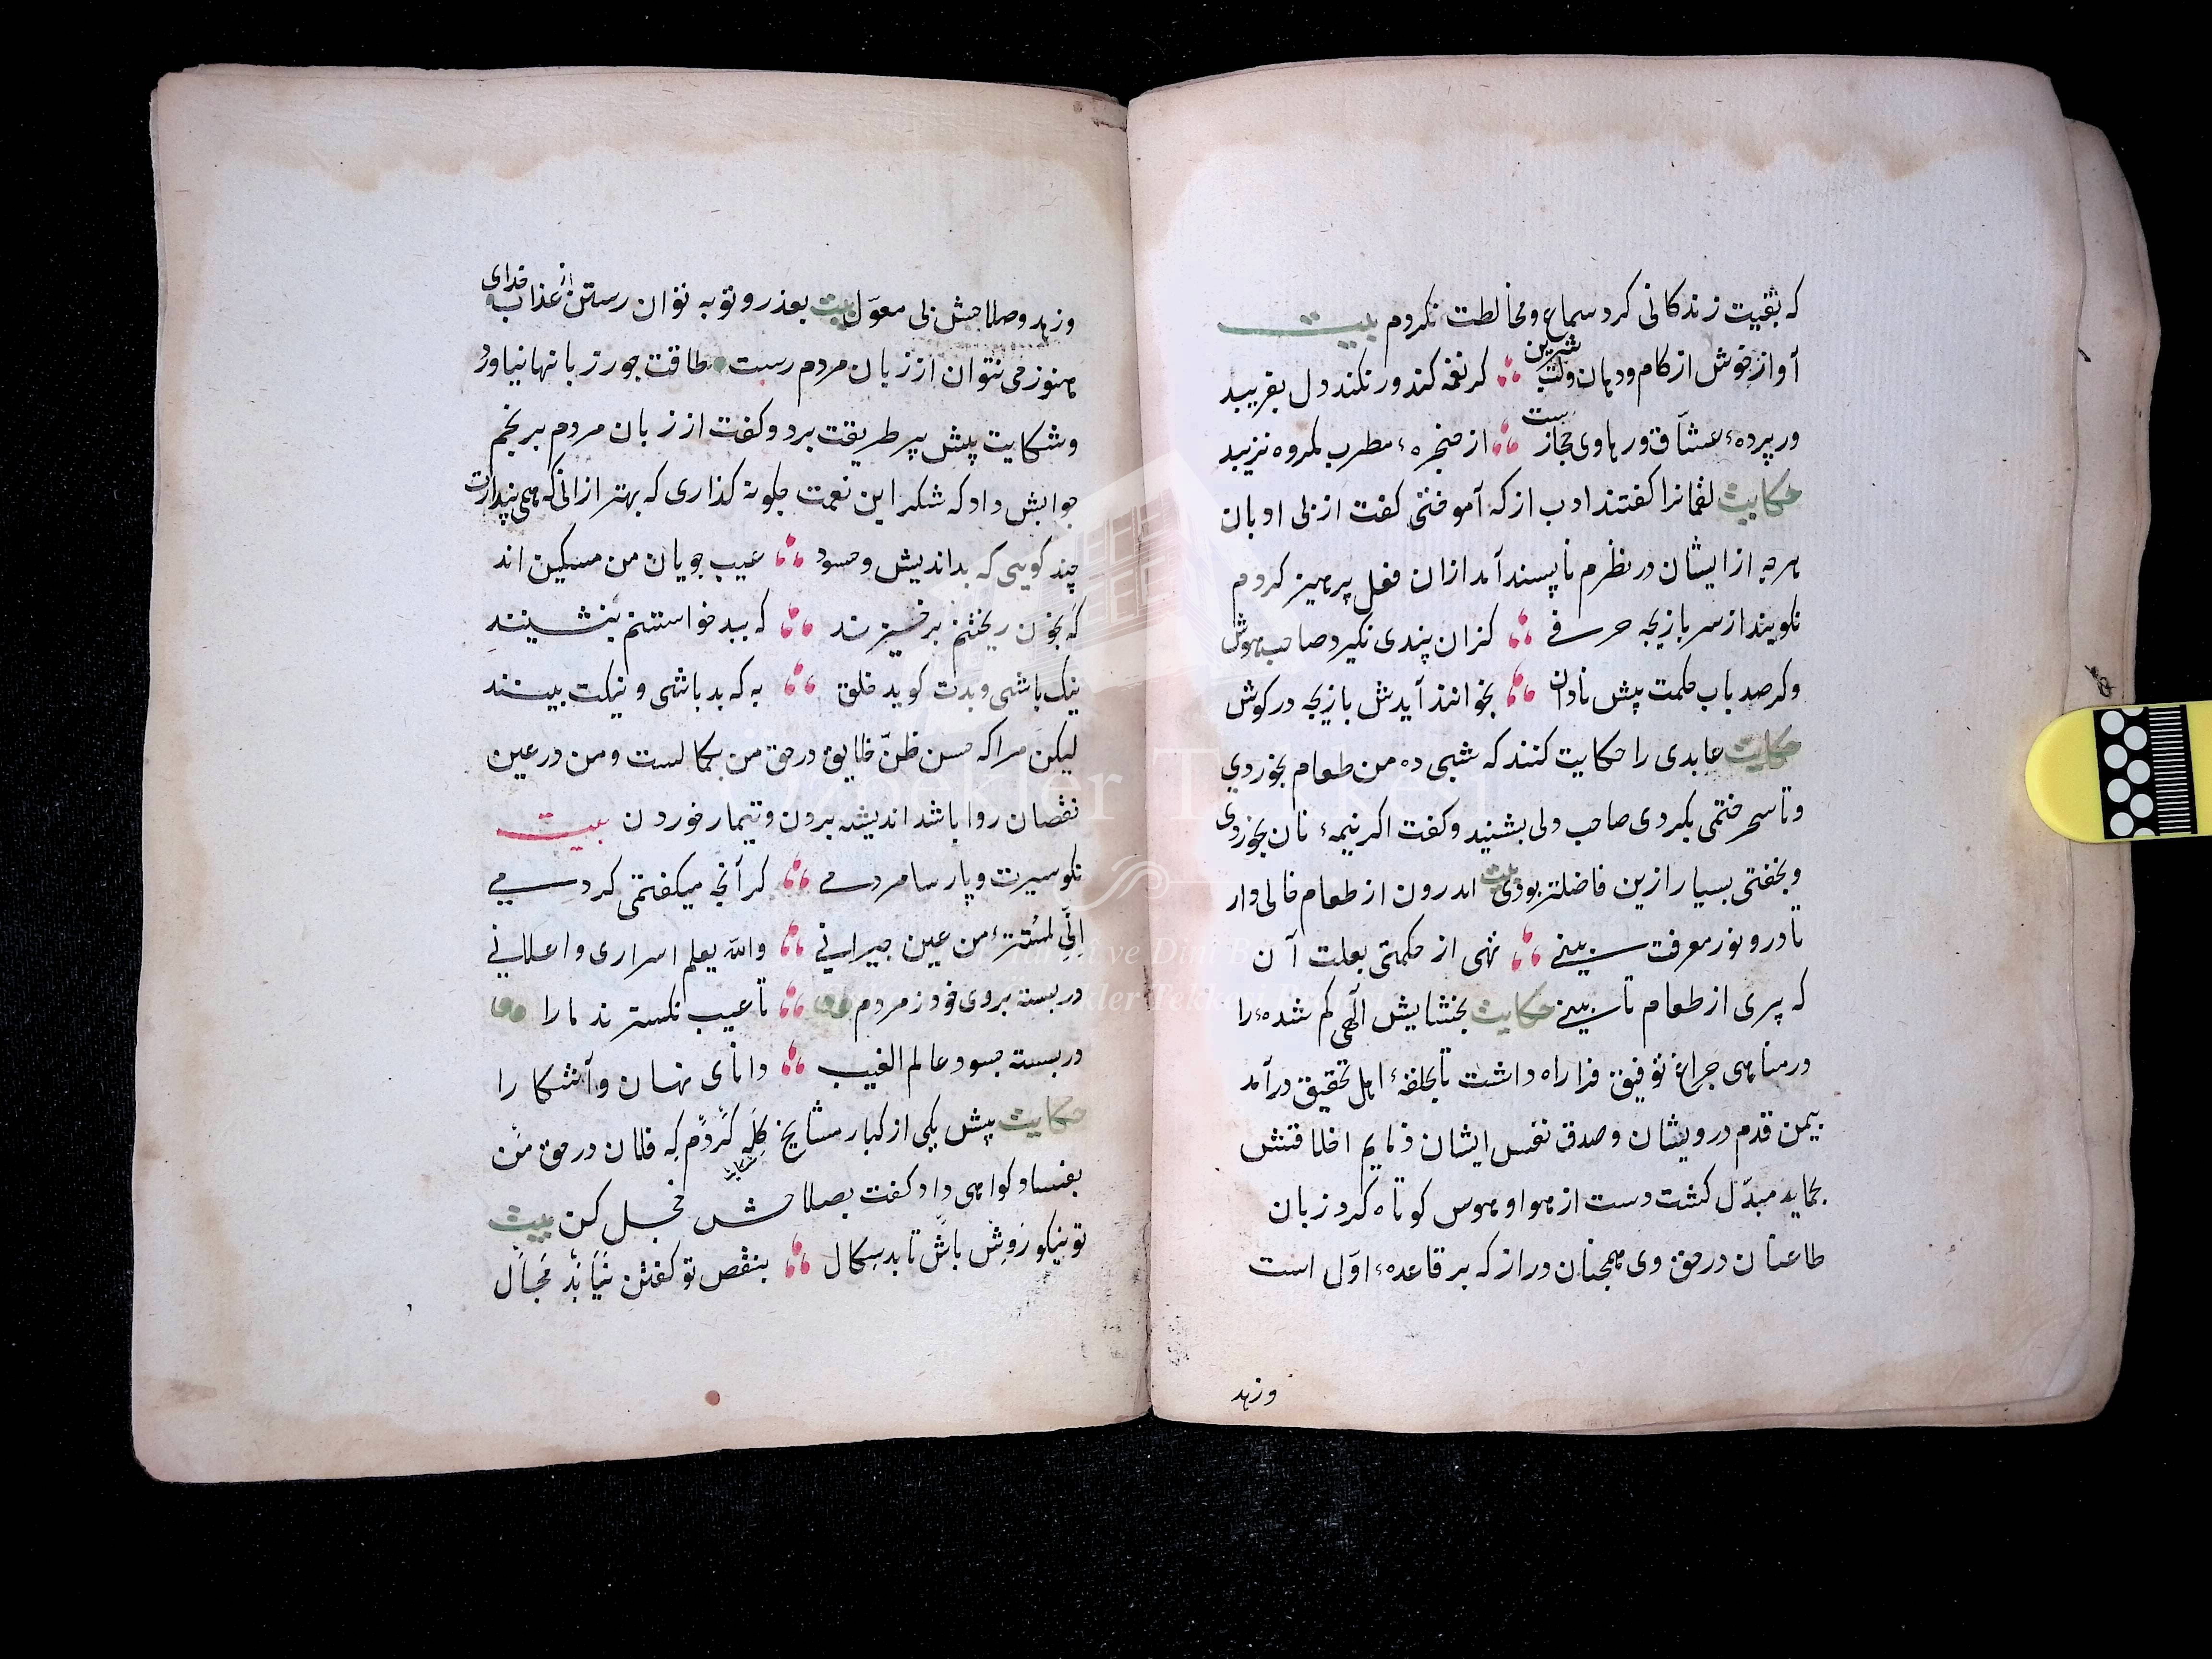 که بقیت زندکانی کرد سماع و مخالطت نکردم بیت
آواز خوش از کام و دهان ولب شیرین کر نغمه کند ور نکند دل بفریبد
ور پرده ٔ عشاق و رهاوی و حجاز ست از حنجره ٔ مطرب مکروه نزیبد
حکایت لقمانرا کفتند ادب از که آموختی کفت از بی ادبان
هرچه از ایشان در نظرم ناپسند آمد ازان فعل پرهیز کردم
نکویند از سر بازیچه حرفی کزان پندی نکیرد صاحب هوش
وکر صد باب حکمت پیش نادان بخوانند آیدش بازیچه در کوش
حکایت عابدی را حکایت کنند که شبی ده من طعام بخوردی
و تا سحر ختمی بکردی صاحب دلی بشنید و کفت اکر نیمه ٔ نان بخوردی
و بخفتی بسیار ازین فاضلتر بودی بیت اندرون از طعام خالی دار
تا درو نور معرفت بینی تهی از حکمتی بعلت آن
که پری از طعام تا بینی حکایت بخشایش آلهی کم شده ٔ را
در مناهی چراغ توفیق فرا راه داشت تا بحلقه ٔ اهل تحقیق درآمد
بیمن قدم درویشان و صدق نفس ایشان ذمایم اخلاقش
بحماید مبدّل کشت دست از هوا و هوس کوتاه کرد زبان
طاعنان در حق وی همچنان دراز که بر قاعده ٔ اوّل است
و زهد
و زهد و صلاحش بی معوّل بیت بعذر و توبه توان رستن از عذاب خدای
هنوز می نتوان از زبان مردم رست طاقت جور زبانها نیاورد
و شکایت پیش پیر طریقت برد و کفت از زبان مردم برنجم
جوابش داد که شکر این نعمت چکونه کذاری که بهتر ازانی که همی پندارت
چند کویی که بداندیش و حسود عیب جویان من مسکین اند
که بخون ریختنم برخیزند که ببد خواستنم بنشینند
نیک باشی و بدت کوید خلق به که بد باشی و نیکت بینند
لیکن مرا که حسن ظنّ خلایق در حق من بکمالست و من در عین
نقصان روا باشد اندیشه بردن و تیمار خوردن بیت
نکو سیرت و پارسا مردمی کر آنچه میکفتمی کردمی
انّی لمستتر من عین جیرانی والله یعلم اسراری و اعلانی
در بسته بروی خود ز مردم تا عیب نکسترند ما را
در بسته چسود عالم الغیب دانای نهان و آشکارا
حکایت پیش یکی از کبار مشایخ کله کردم که فلان در حق من
شکایت
بفساد کواهی داد کفت بصلاحش خجل کن بیت
تو نیکو روش باش تا بد سکال بنقص تو کفتن نیابد مجال